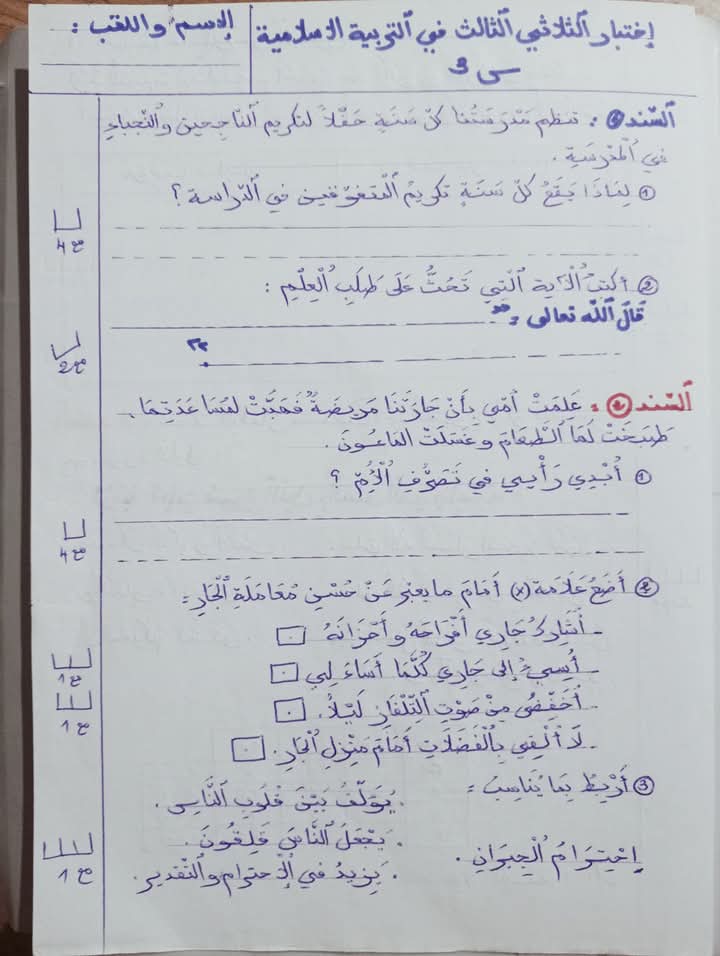 إختبار الثلاثي الثالث في التربية الاسلامية
الإسم واللقب :
س 3
السّند 1 : تنظم مَدْرَسَتُنَا كلّ سَنَةٍ حَفْلاً لتكريم النّاجحين والنّجباءِ
في الْمَدْرَسَةِ .
1 لِمَاذَا يَقَعُ كلّ سَنَةٍ تكريمُ الْمتفوّقين في الدّراسة ؟
4ع
2 أكتبُ الْآية الّتي تَحُثُّ عَلَى طَلَبِ الْعِلْمِ :
قال اللّه تعالى :
2ع
السّند 2 : عَلِمَتْ أمّي بِأَنّ جَارَتَنَا مَريضَةٌ فَهَبَّتْ لمُسَاعَدَتِهَا ،
طَبَخَتْ لَهَا الطّعَامَ وغَسَلَتْ المَاعُونَ .
1 أُبْدِي رَأْيِي في تَصَرُّفِ الْأُمّ ؟
4ع
2 أَضَعُ عَلَامَة (x) أَمَامَ ما يعبّر عَنْ حُسْنِ مُعَامَلَةِ الْجَارِ :
- أُشَارِكُ جَارِي أَفْرَاحَهُ وأَحْزَانَهُ
- أُسِيءُ إلى جَارِي كُلَّمَا أَسَاءَ لِي
1ع
- أُخَفِّضُ مِنْ صَوْتِ التِّلْفَازِ لَيْلاً .
1ع
- لَا أُلْقِي بِالْفَضَلَاتِ أَمَامَ مَنْزِلِ الْجَارِ .
3 أَرْبِطُ بِمَا يُنَاسِبُ :
. يُؤَلِّفُ بَيْنَ قُلُوبِ النَّاسِ .
. يَجْعَلُ النَّاسَ قَلِقُونَ .
إِحْتِرَامُ الْجِيرَانِ .
. يَزِيدُ في الْإِحترام والتّقدير .
1ع